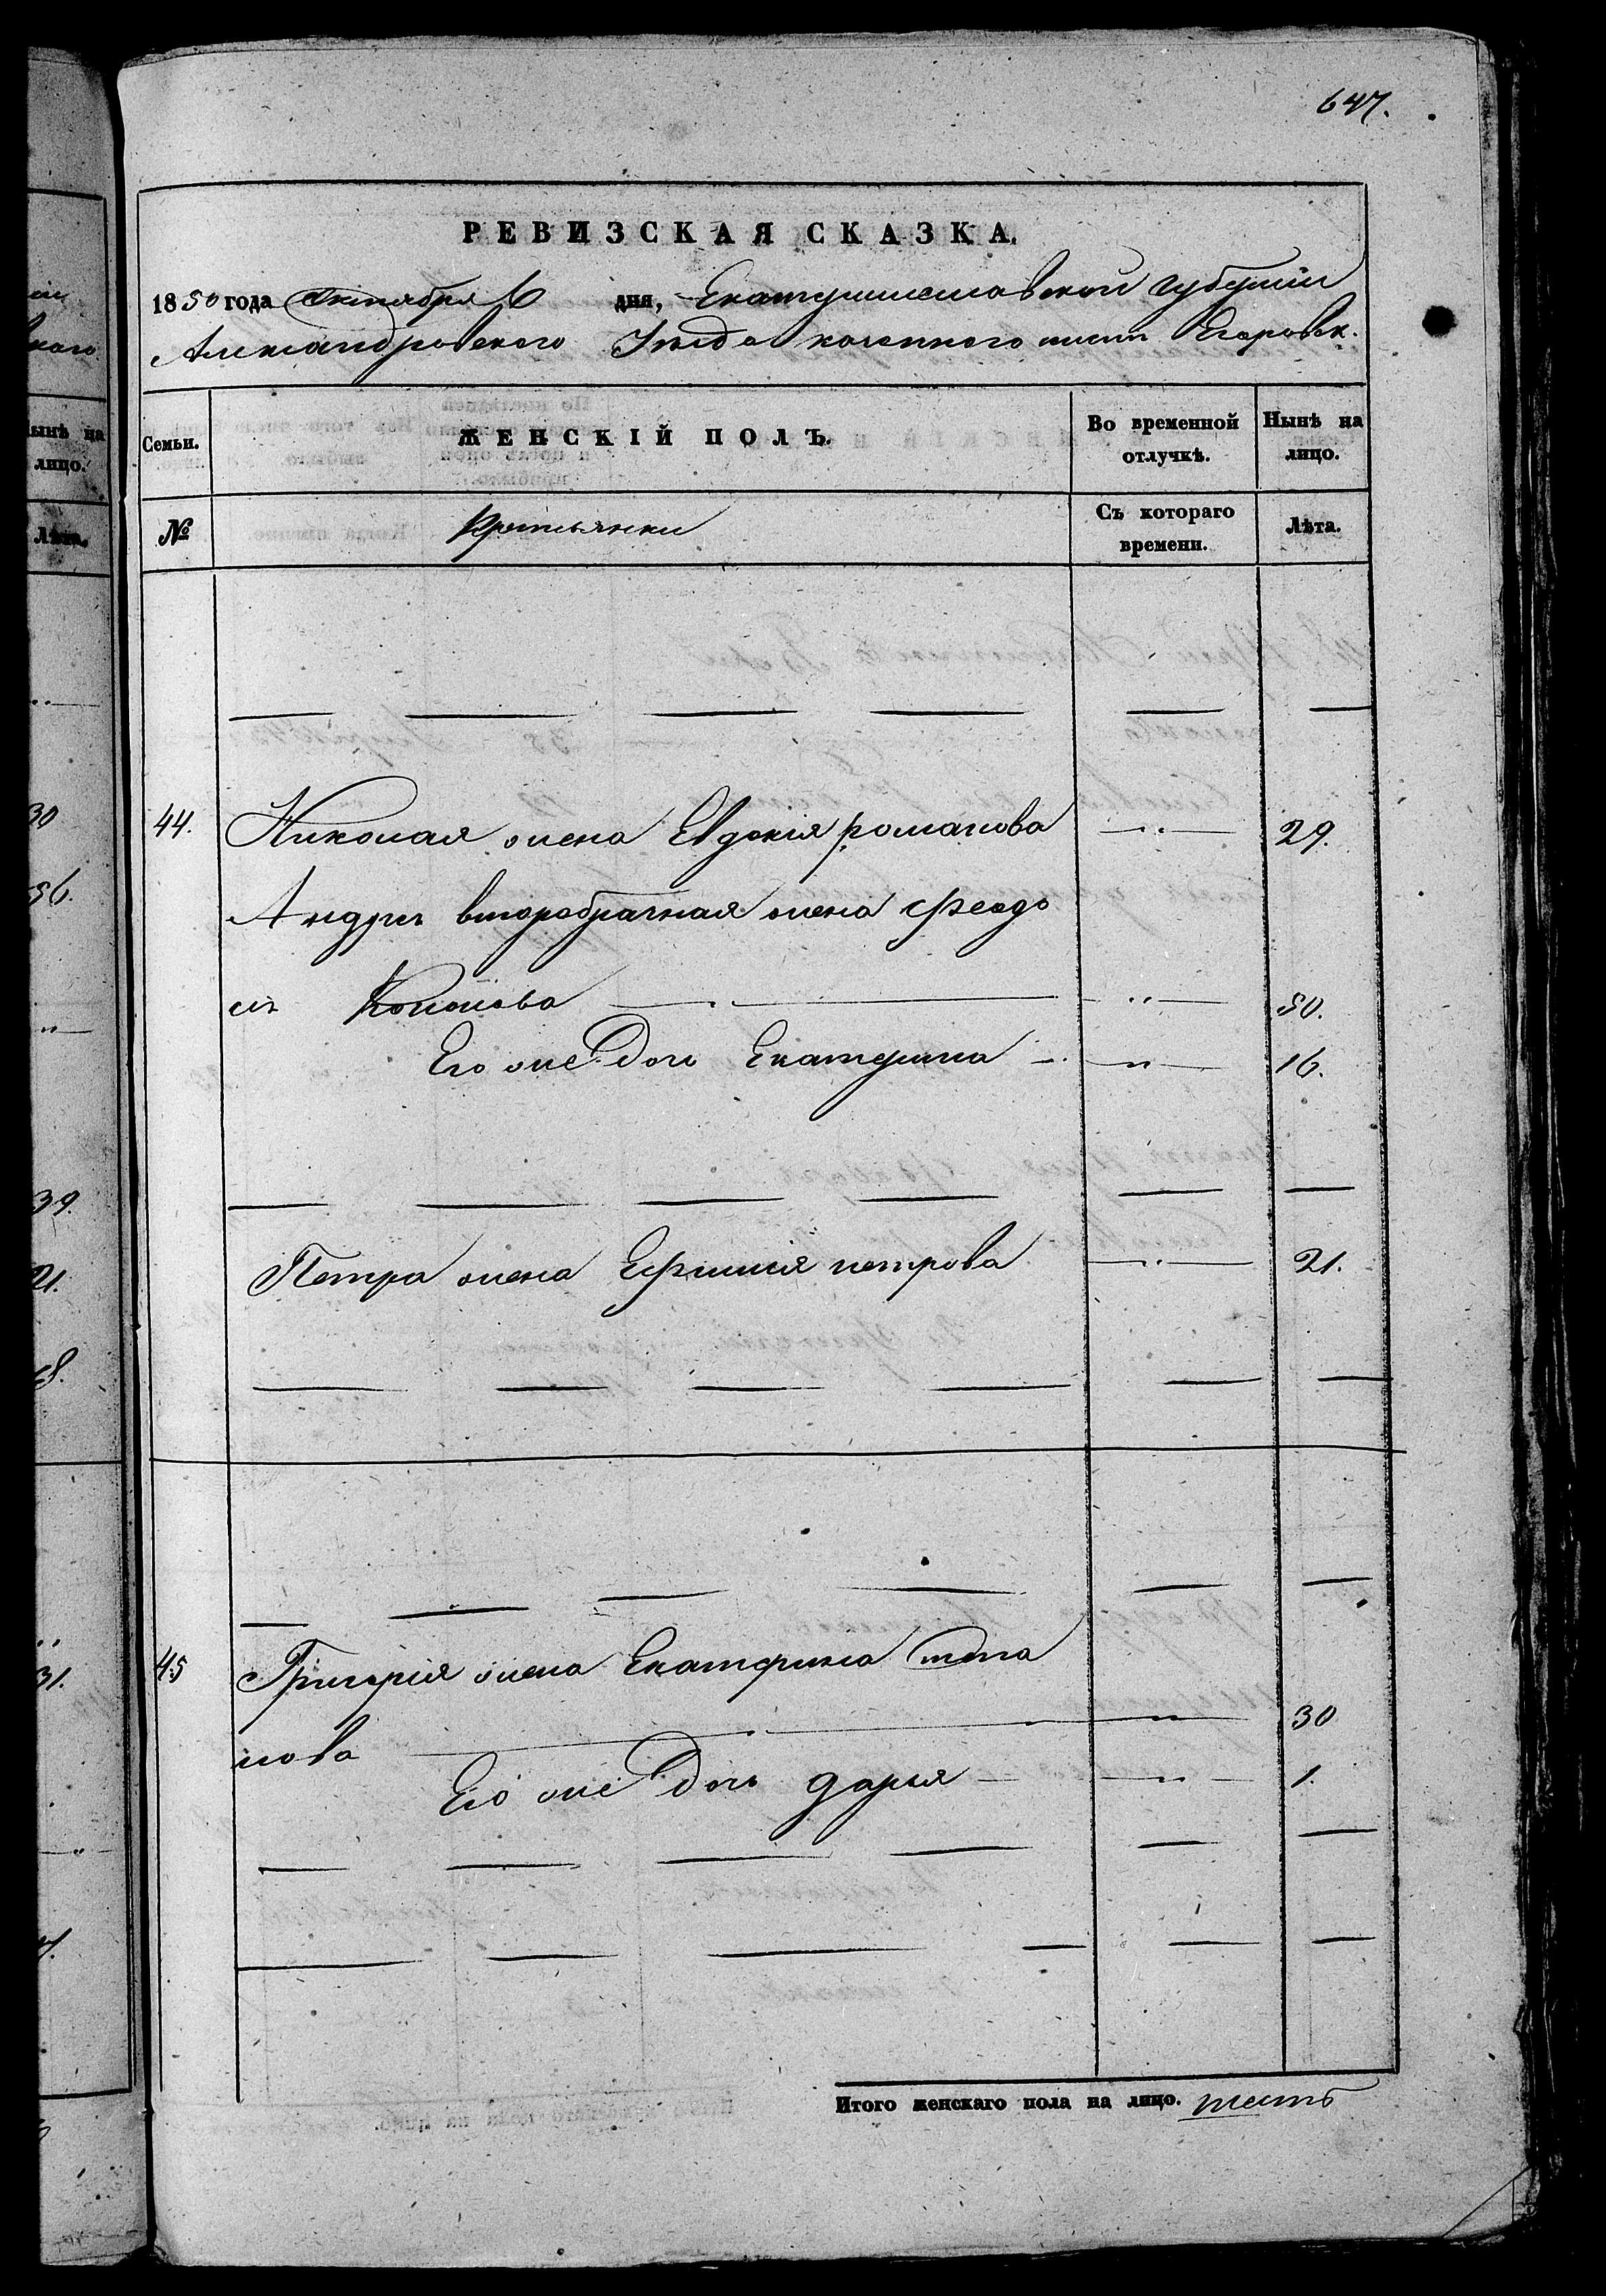 647.
РЕВИЗСКАЯ СКАЗКА.
1850 года Октября 6 дня, Екатеринославской губернии
Александровского Уезда казенного села Егоровк.
Семьи. ЖЕНСКІЙ ПОЛЪ. Во временной отлучкѣ. Нынѣ на лицо.
№ Крестьянки Съ котораго времени. Лѣта.
44. Николая жена Евдокія романова 29.
Андрея второбрачная жена Феодо
сія Кононова 50.
Его же Дочь Екатерина 16.
Петра жена Ефимія петрова 21.
45 Григорія жена Екатерина
нова 30
Его же Дочь дарья 1.
Итого женскаго пола на лицо. шесть
ынѣ на
лицо.
Лѣта.
30
56.
39.
21.
31.